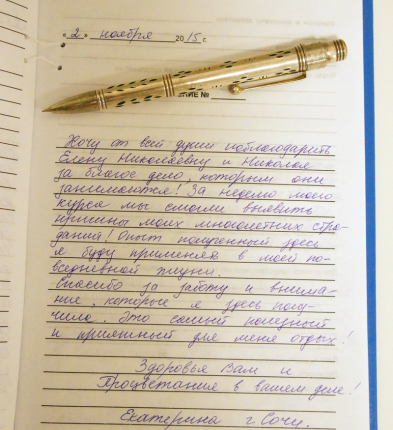 « 2 » ноября 2015 г.
ЕНИЕ №
Хочу от всей души поблагодарить
Елену Николаевну и Николая
за благое дело, которым они
занимаются! За неделю моего
курса мы смогли выявить
причины моих многолетних стра-
даний! Опыт полученный здесь
я буду применять в моей по-
вседневной жизни.
Спасибо за заботу и внима-
ние, которые я здесь полу-
чила. Это самый полезный
и приятный для меня отдых!
Здоровья Вам и
Процветания в вашем деле!
Екатерина г. Сочи.